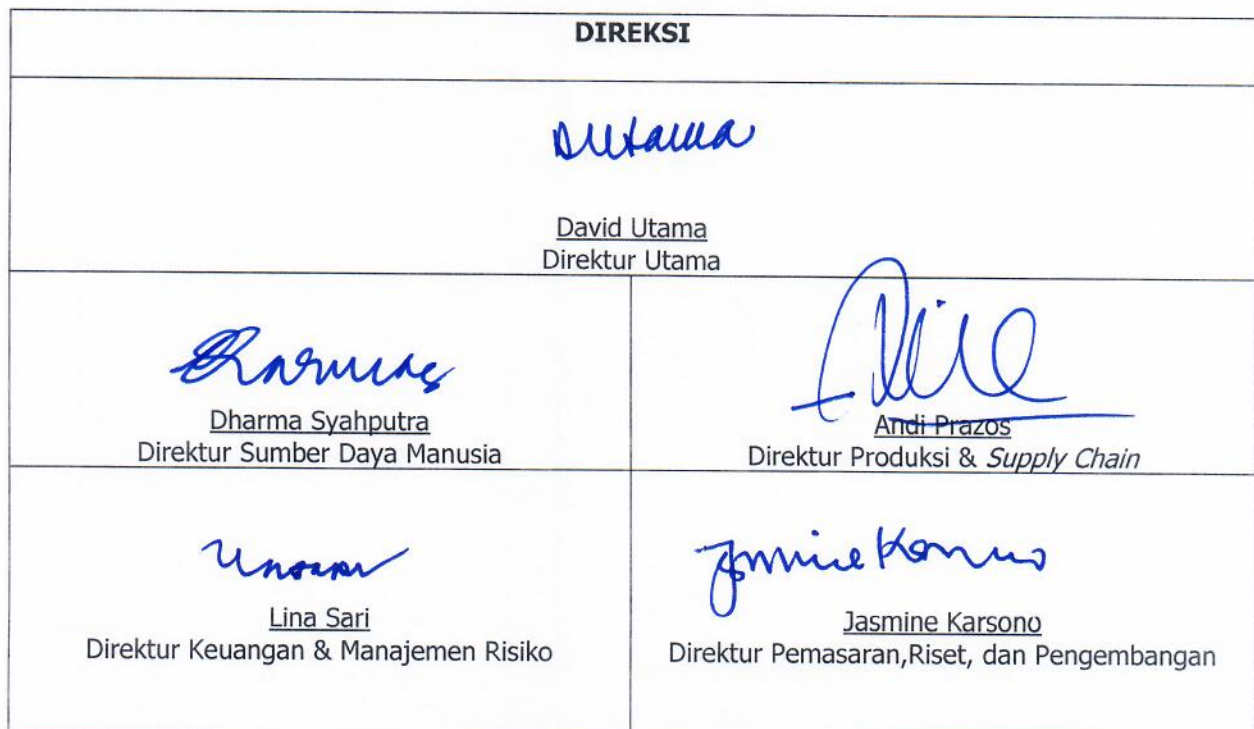 DIREKSI
DUtama
David Utama
Direktur Utama
Dharma Syahputra
Direktur Sumber Daya Manusia
Andi Prazos
Direktur Produksi & Supply Chain
Lina Sari
Direktur Keuangan & Manajemen Risiko
Jasmine Karsono
Direktur Pemasaran,Riset, dan Pengembangan